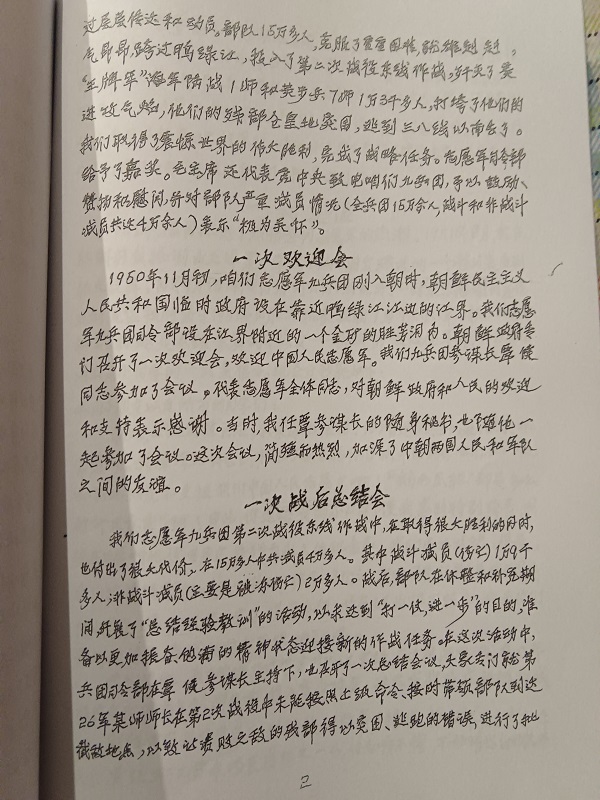 过层层传达和动员。部队15万多人,克服了重重困难,雄赳赳,
气昂昂,跨过鸭绿江,投入了第二次战役东线作战,歼灭了美
"王牌军"海军陆战1师和美步兵7师1万3千多人,打垮了他们的
进攻气焰,他们的残部仓皇地突围,逃到三八线以南去了。
我们取得了震惊世界的伟大胜利,完成了战略任务。志愿军司令部
给予了嘉奖。毛主席还代表党中央致电咱们九兵团,予以鼓励、
赞扬和慰问,并对部队严重减员情况(全兵团15万余人,战斗和非战斗
减员共达4万余人)表示"极为关怀"。
一次欢迎会
1950年11月初,咱们志愿军九兵团刚入朝时,朝鲜民主主义
人民共和国临时政府设在靠近鸭绿江江边的江界。我们志愿
军九兵团司令部设在江界附近的一个金矿的胜芳洞内。朝鲜政府专
门召开了一次欢迎会,欢迎中国人民志愿军。我们九兵团参谋长覃健
同志参加了会议,代表志愿军全体同志,对朝鲜政府和人民的欢迎
和支持表示感谢。当时,我任覃参谋长的随身秘书,也随他一
起参加了会议。这次会议,简短而热烈,加深了中朝两国人民和军队
之间的友谊。
一次战后总结会
我们志愿军九兵团第二次战役东线作战中,在取得很大胜利的同时,
也付出了很大代价,在15万多人中共减员4万多人。其中战斗减员(伤亡)1万9千
多人;非战斗减员(主要是被冻伤亡)2万多人。战后,部队在休整和补充期
间,开展了"总结经验教训"的活动,以求达到"打一仗,进一步"的目的,准
备以更加振奋、饱满的精神状态迎接新的作战任务。在这次活动中,
兵团司令部在覃健参谋长主持下,也召开了一次总结会议,大家专门就第
26军某师师长在第2次战役中未能按照上级命令、按时带领部队到达
截敌地点,以致让溃败之敌的残部得以突围、逃跑的错误,进行了批
2